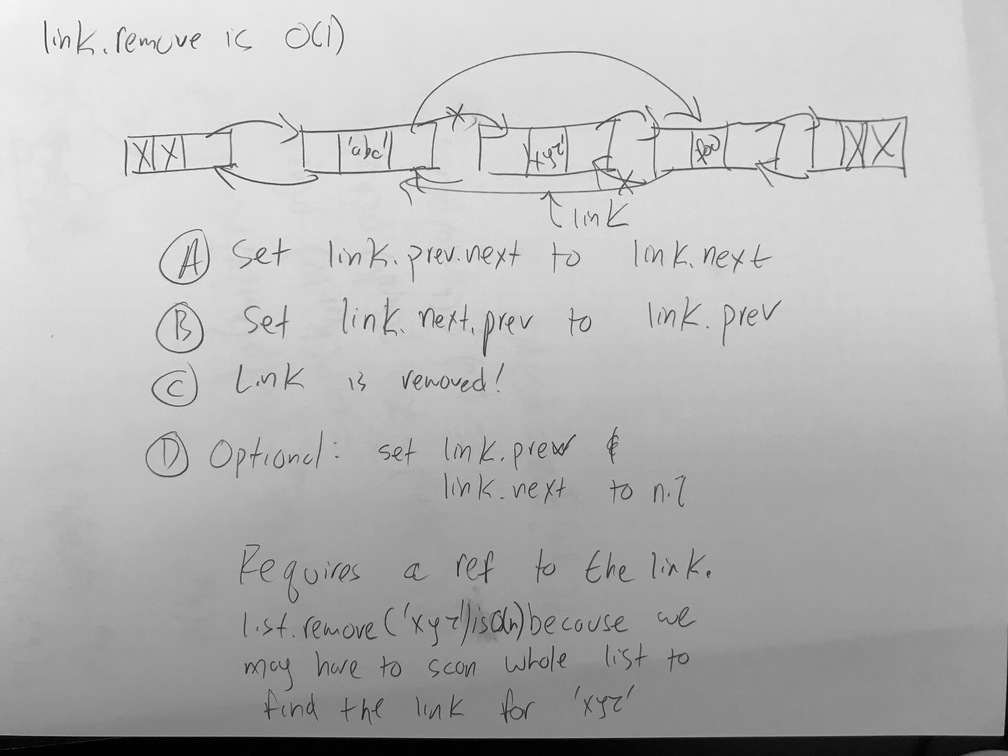 link.remove is O(1)
X X 'abc' 'xyz' foo X X
link
A Set link.prev.next to link.next
B Set link.next.prev to link.prev
C Link is removed!
D Optional: set link.prev &
link.next to nil
Requires a ref to the link.
list.remove('xyz') is O(n) because we
may have to scan whole list to
find the link for 'xyz'